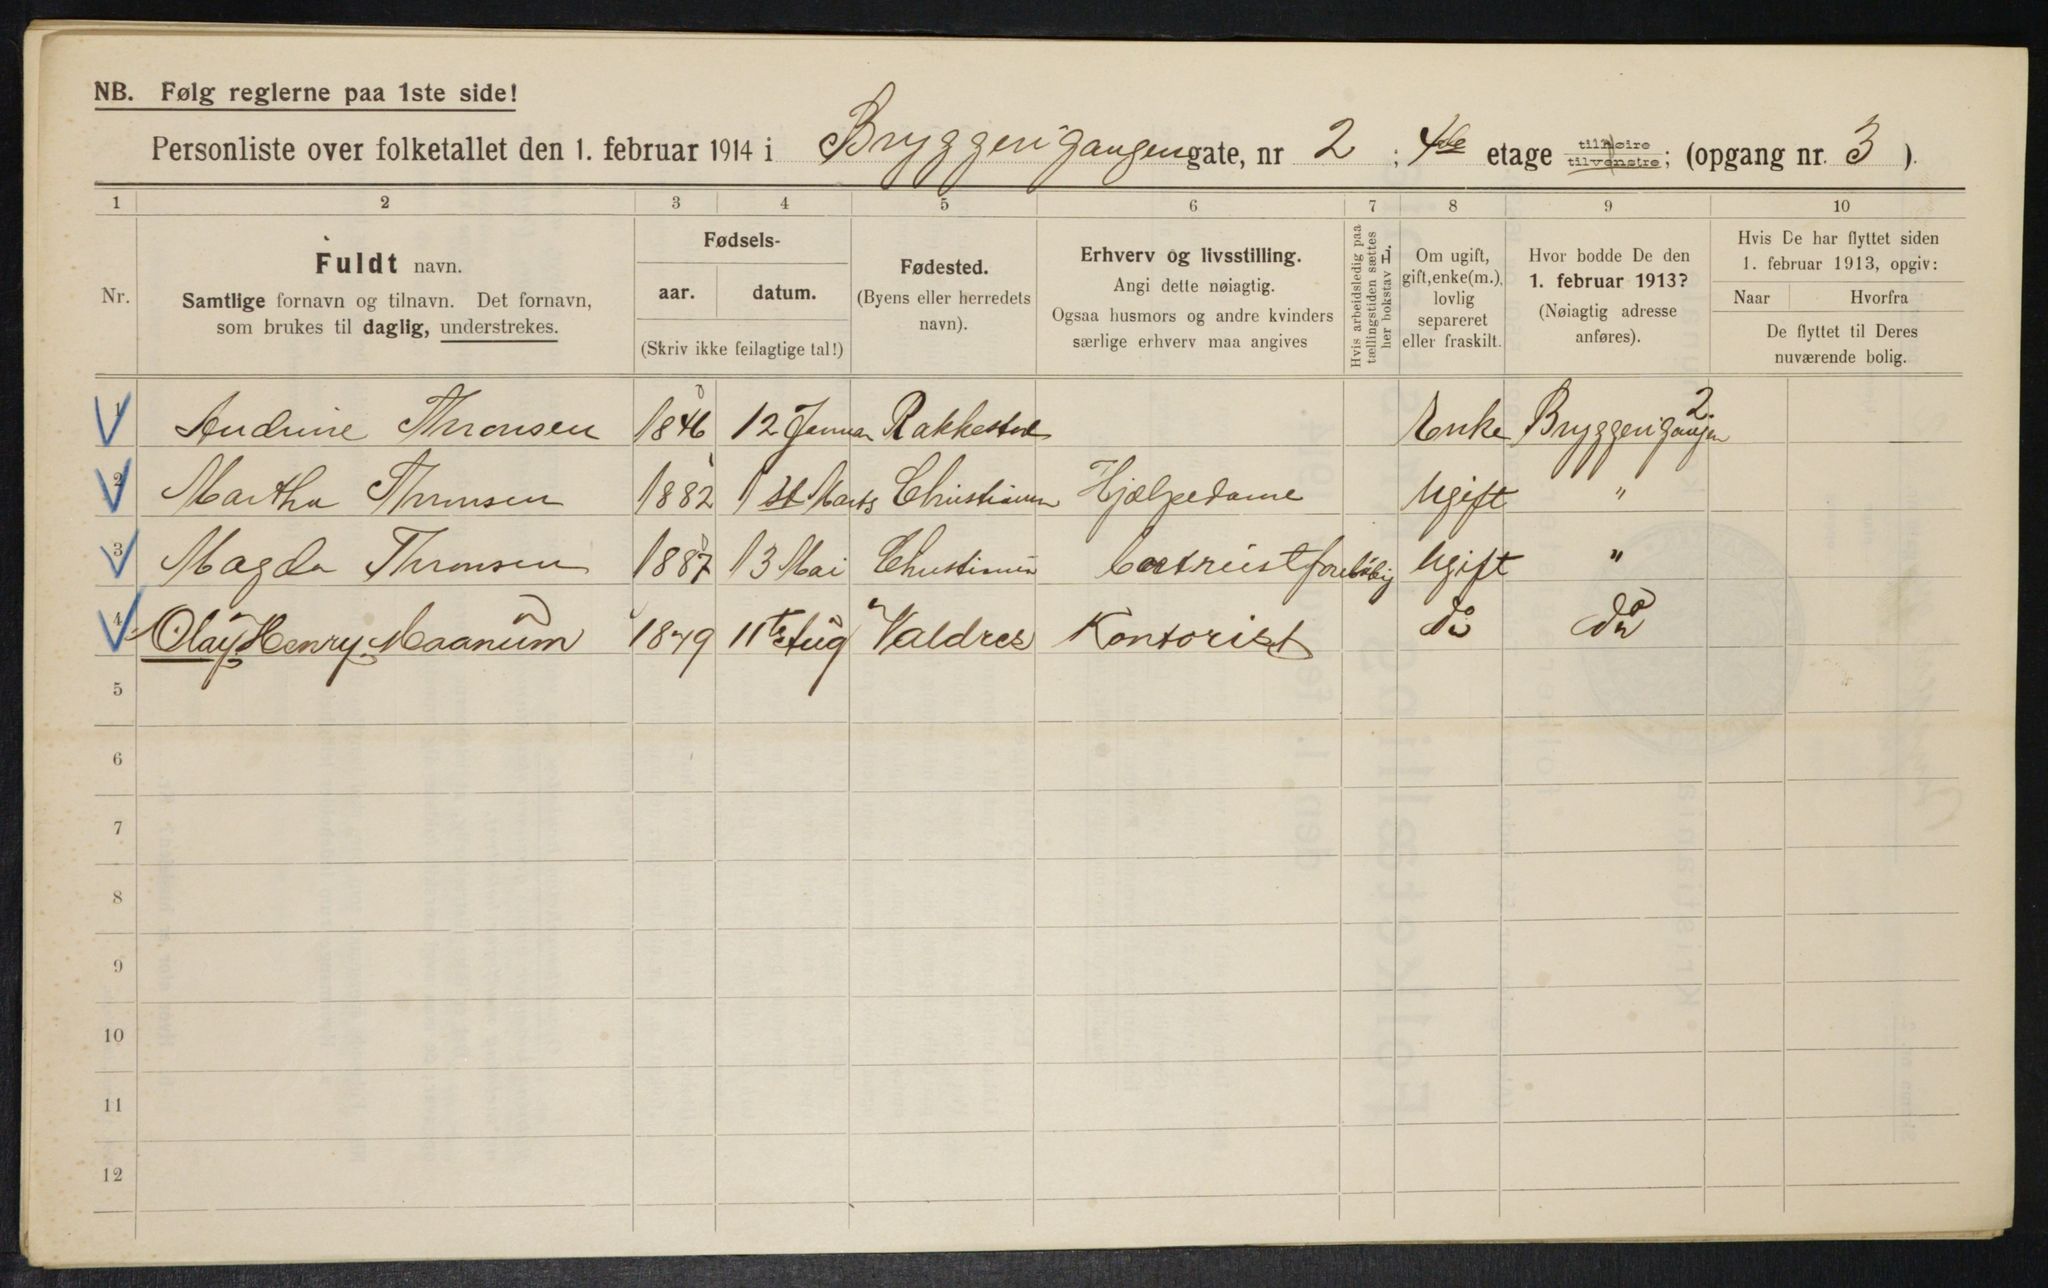 NB. Følg reglerne paa 1ste side!
Personliste over folketallet den 1. februar 1914 i Bryggerigangen gate, nr 2 ; 4de etage tilhøire tilvenstre; (opgang nr. 3 ).
1 2 3 4 5 6 7 8 9 10
Nr.
Fuldt navn.
Samtlige fornavn og tilnavn. Det fornavn,
som brukes til daglig, understrekes.
Fødsels-
aar. datum.
(Skriv ikke feilagtige tal!)
Fødested.
(Byens eller herredets
navn).
Erhverv og livsstilling.
Angi dette nøiagtig.
Ogsaa husmors og andre kvinders
særlige erhverv maa angives
Hvis arbeidsledig paa
tællingstiden sættes
her bokstav L.
Om ugift,
gift, enke(m.),
lovlig
separeret
eller fraskilt.
Hvor bodde De den
1. februar 1913?
(Nøiagtig adresse
anføres).
Hvis De har flyttet siden
1. februar 1913, opgiv:
Naar Hvorfra
De flyttet til Deres
nuværende bolig.
1 Andrine Thronsen 1846 12 Januar Rakkestad Enke Bryggerigangen 2
2 Martha Thronsen 1882 1st Marts Christiania Hjælpedame Ugift "
3 Magda Thronsen 1887 13 Mai Christiania foreløbig Ugift "
4 Olaf Henry Maanum 1849 11te Aug Valdres Kontorist do do
5
6
7
8
9
10
11
12